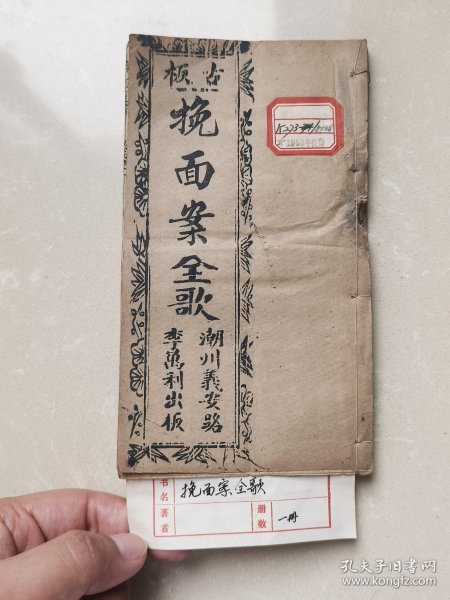 古板
挽面案全歌
潮州義安路
李萬利出板
书名
挽面案全歌
著者
册数
一册
孔夫子旧书网
www.kongfz.com